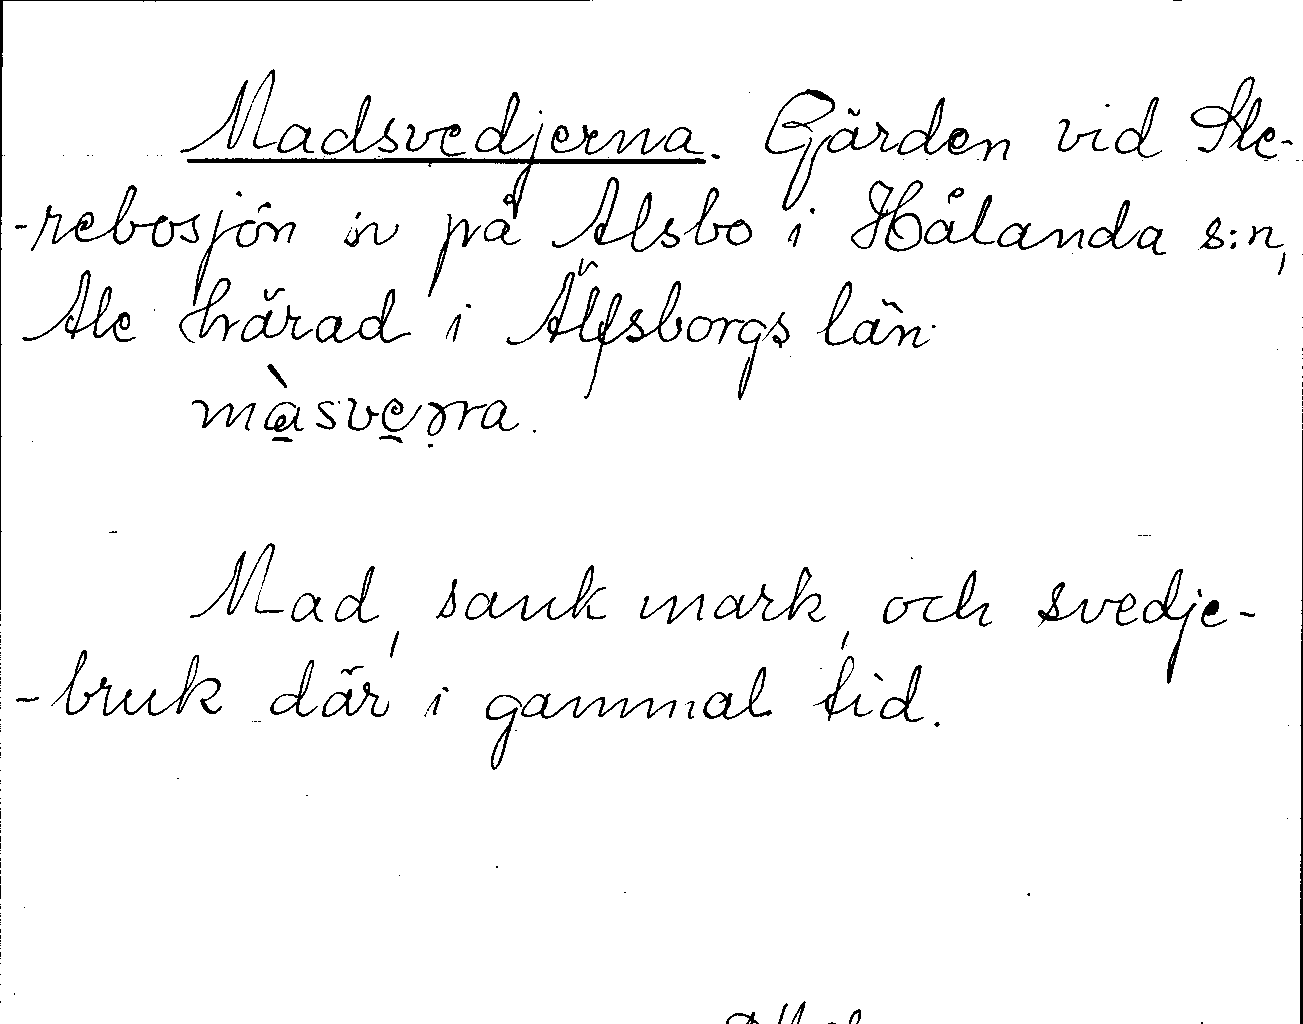 Madsvedjerna. Gärden vid Ste-
-rebosjön in på Alsbo i Hålanda s:n,
Ale härad i Älfsborgs län.
màsverra.
Mad, sank mark, och svedje-
-bruk där i gammal tid.